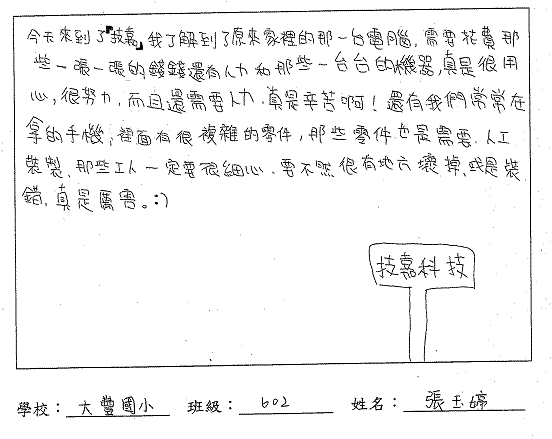 今天來到了「技嘉」我了解到了原來家裡的那一台電腦,需要花費那
些一張一張的錢錢還有人力和那些一台台的機器,真是很用
心,很努力,而且還需要人力,真是辛苦啊!還有我們常常在
拿的手機,裡面有很複雜的零件,那些零件也是需要人工
裝製,那些工人一定要很細心,要不然很有地方壞掉,或是裝
錯,真是厲害。:)
技嘉科技
學校: 大豐國小 班級: 602 姓名: 張玉婷